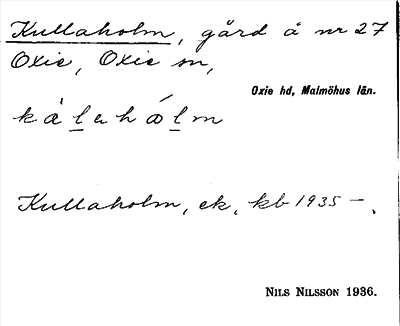 Kullaholm, gård å nr 27
Oxie, Oxie sn,
Oxie hd, Malmöhus län.
Kullaholm, ek. kb 1935 –.
NILS NILSSON 1936.